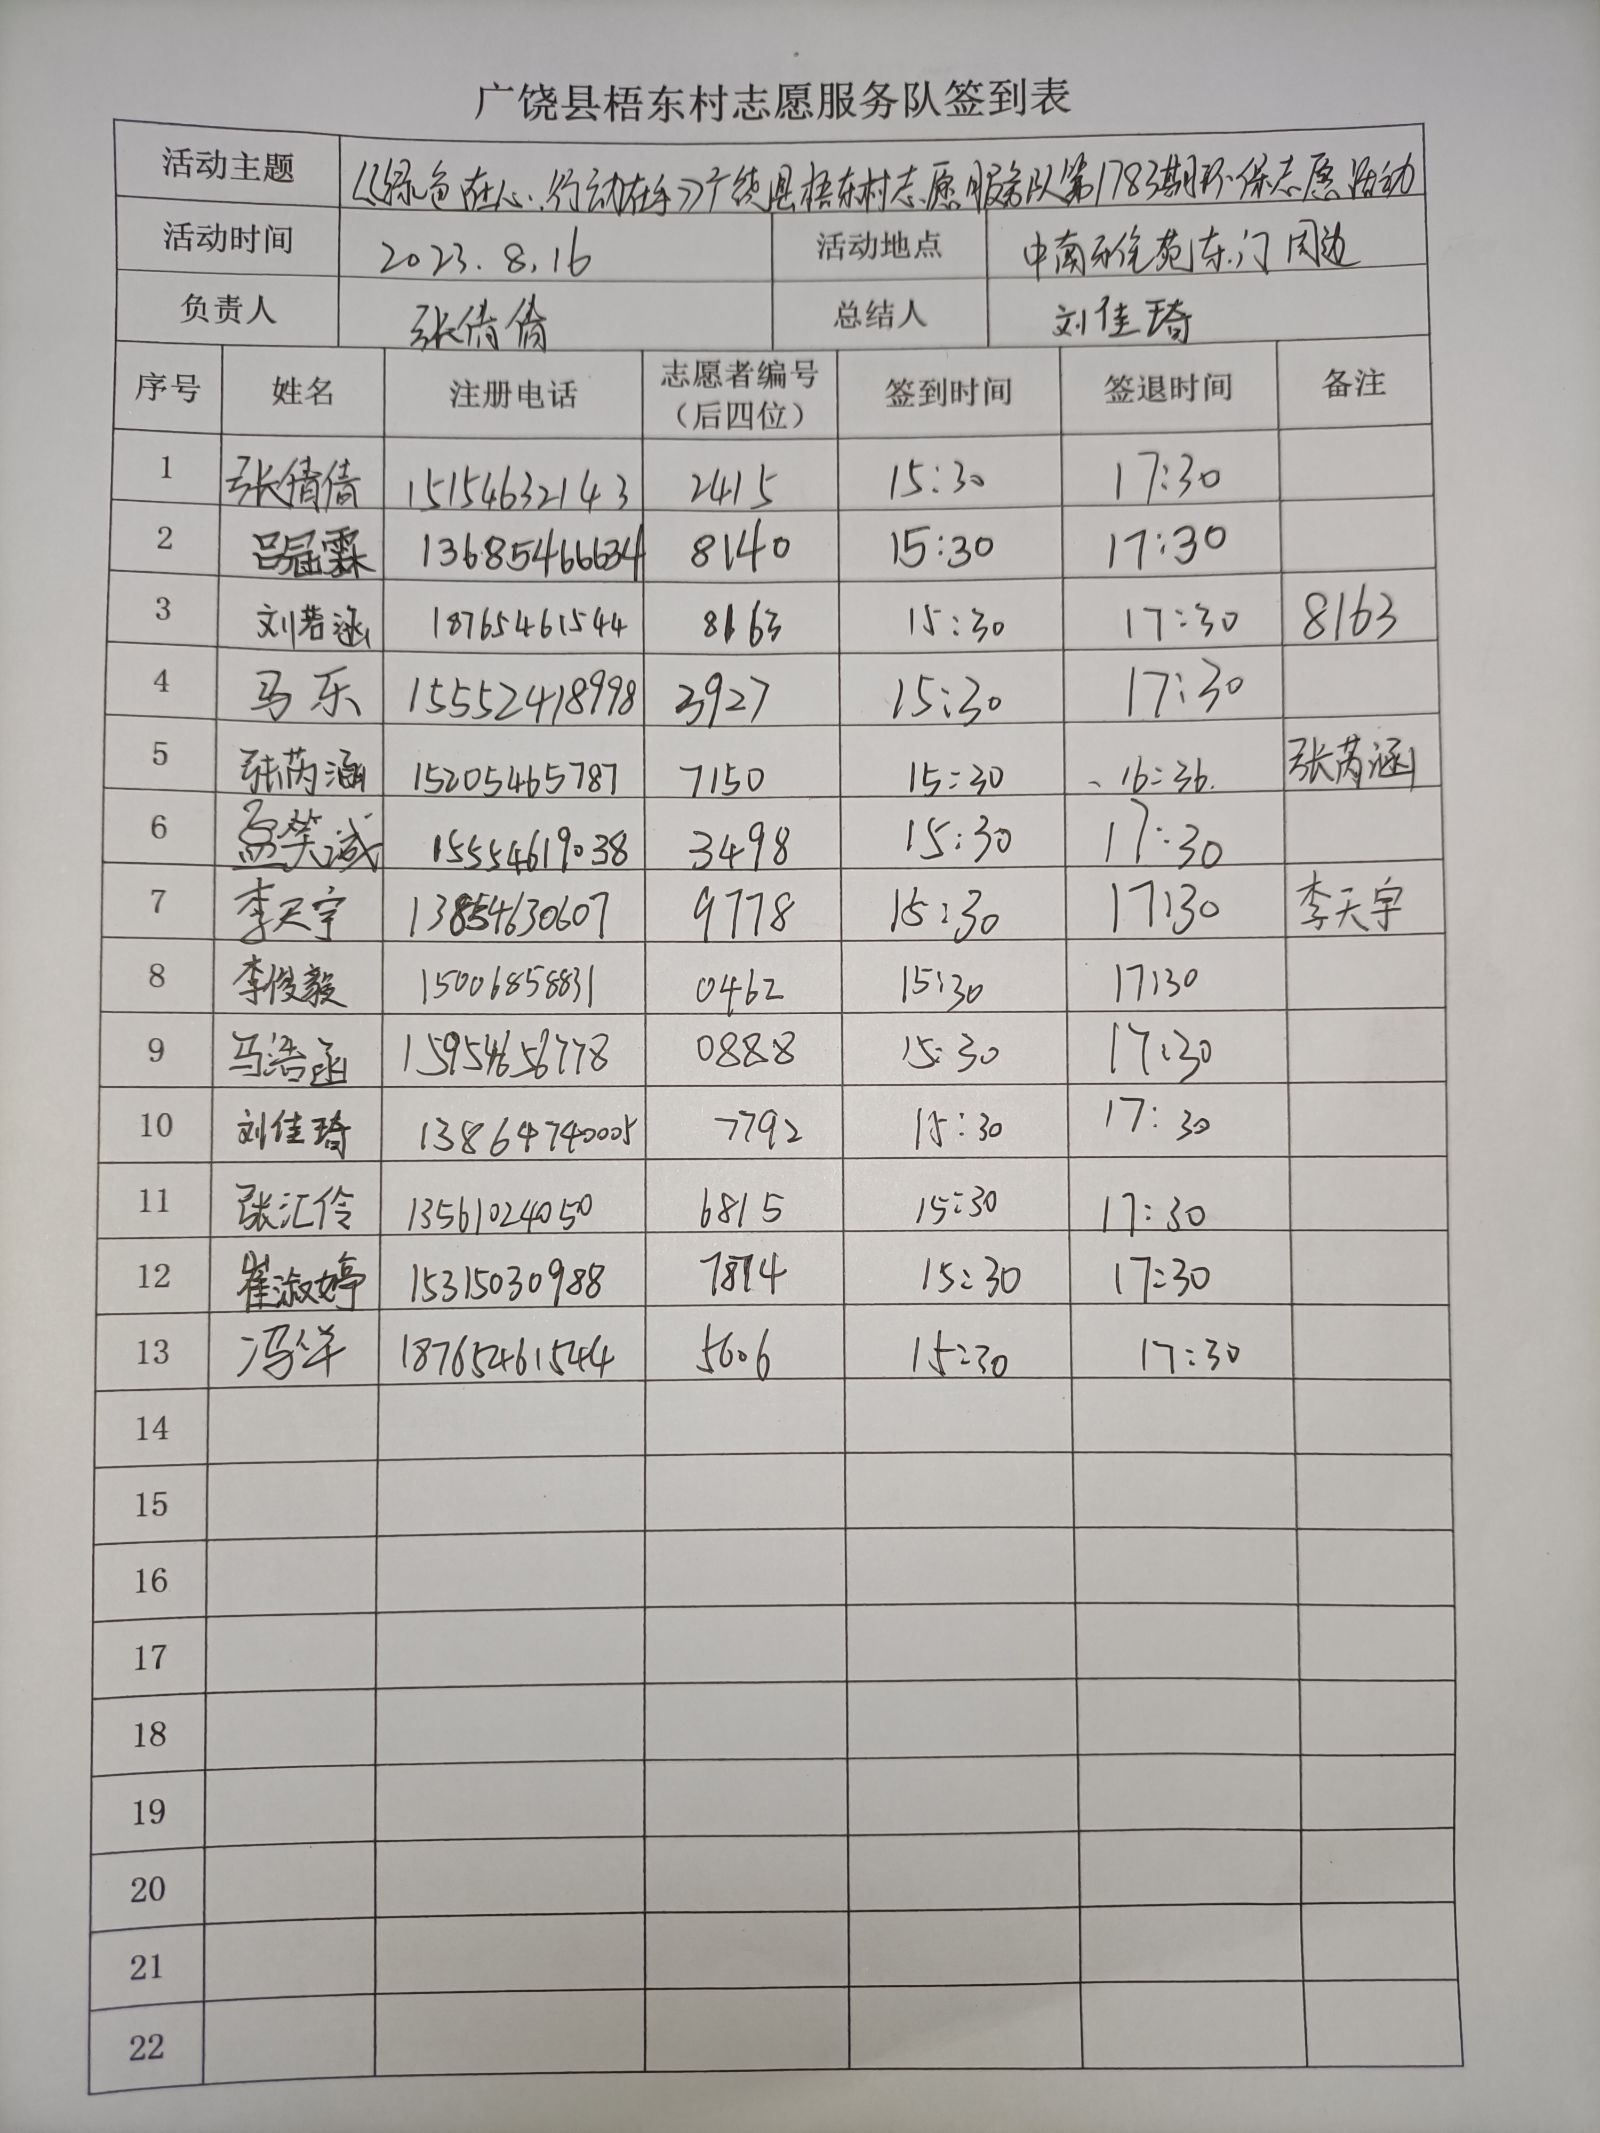 广饶县梧东村志愿服务队签到表
活动主题 《绿色在心、行动在手》广饶县梧东村志愿服务队第1783期环保志愿活动
活动时间 2023.8.16 活动地点 中南世纪苑东门周边
负责人 张倩倩 总结人 刘佳琦
序号 姓名 注册电话 志愿者编号（后四位） 签到时间 签退时间 备注
1 张倩倩 15154632143 2415 15:30 17:30
2 吕冠霖 13685466634 8140 15:30 17:30
3 刘若涵 18765461544 8163 15:30 17:30 8163
4 马乐 15552418998 3927 15:30 17:30
5 张芮涵 15205465787 7150 15:30 16:36 张芮涵
6 15554619038 3498 15:30 17:30
7 李天宇 13854630607 9778 15:30 17:30 李天宇
8 李俊毅 15006858831 0462 15:30 17:30
9 马浩函 15954656778 0888 15:30 17:30
10 刘佳琦 13864740005 7792 15:30 17:30
11 张汇伶 13561024050 6815 15:30 17:30
12 崔淑婷 15315030988 7814 15:30 17:30
13 冯洋 18765461544 5606 15:30 17:30
14
15
16
17
18
19
20
21
22